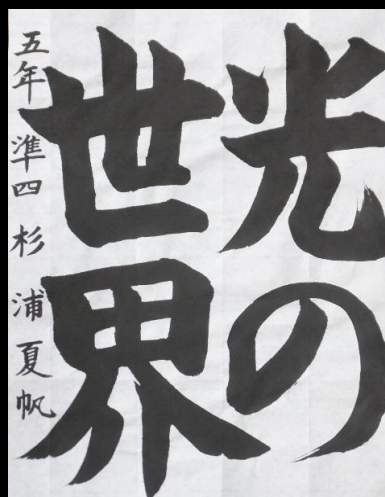 光の
世界
五年 準四 杉浦夏帆